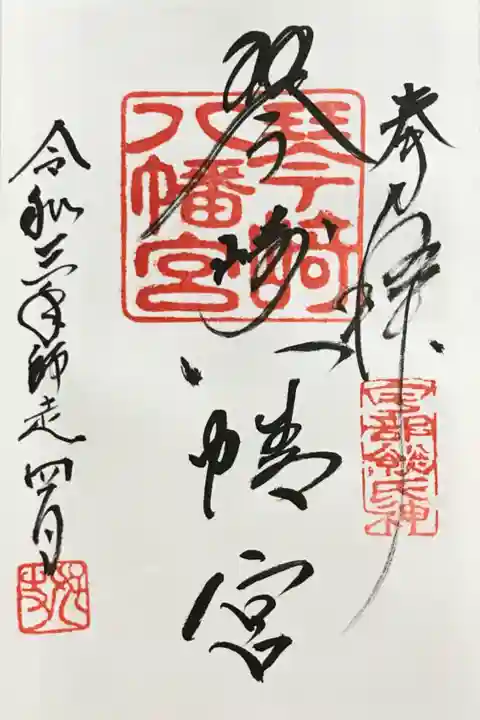 奉拝
宇部総氏神
琴崎八幡宮
琴崎
八幡宮
令和三年師走四日